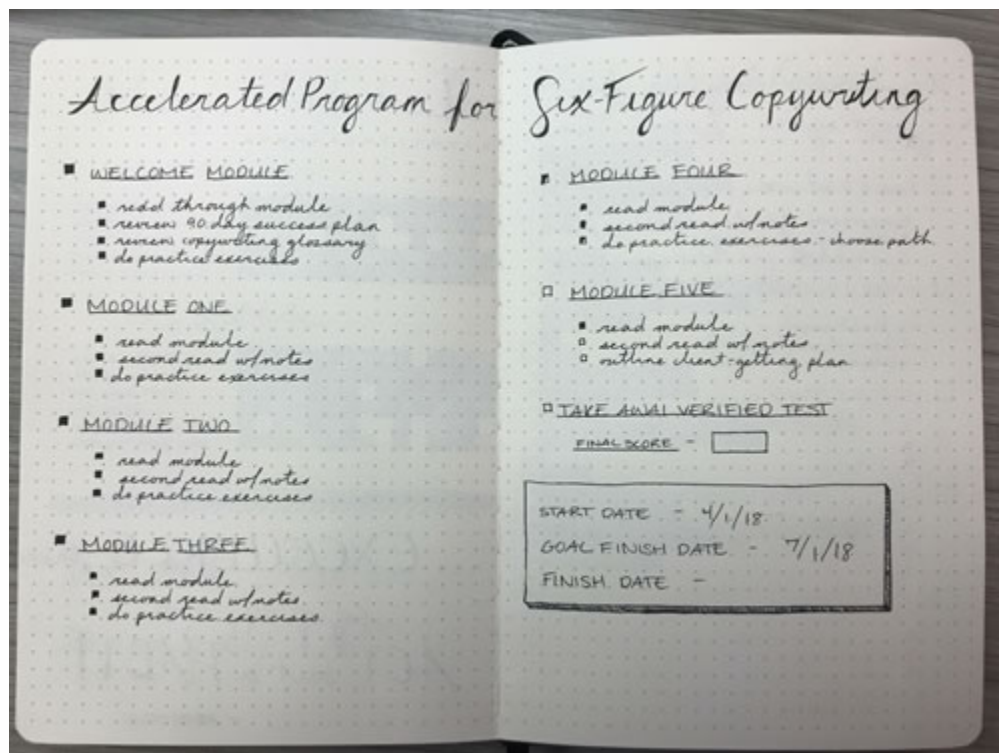 Accelerated Program for Six-Figure Copywriting
WELCOME MODULE
read through module
review 90 day success plan
review copywriting glossary
do practice exercises
MODULE ONE
read module
second read w/notes
do practice exercises
MODULE TWO
read module
second read w/notes
do practice exercises
MODULE THREE
read module
second read w/notes
do practice exercises
MODULE FOUR
read module
second read w/notes
do practice exercises - choose path
MODULE FIVE
read module
second read w/notes
outline client-getting plan
TAKE AWAI VERIFIED TEST
FINAL SCORE -
START DATE - 4/1/18
GOAL FINISH DATE - 7/1/18
FINISH DATE -